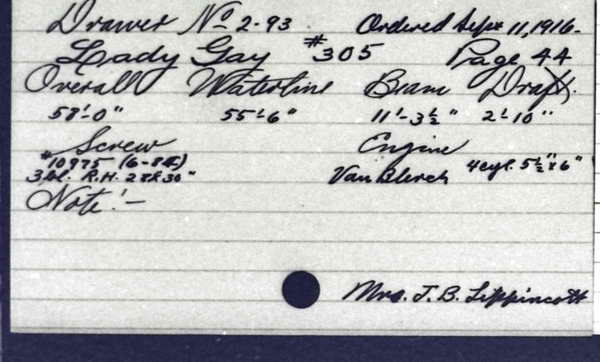 Drawer No 2-93 Ordered Sept 11, 1916-
Lady Gay #305 Page 44
Overall Waterline Beam Draft
58'-0" 55'-6" 11'-3½" 2'-10"
Screw Engine
#10975 (6-8-16) Van Blerck 4 cyl. 5½"x6"
3 bl. R.H. 28x30"
Note:-
Mrs. J. B. Lippincott